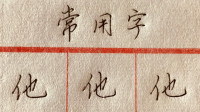 常用字
他 他 他